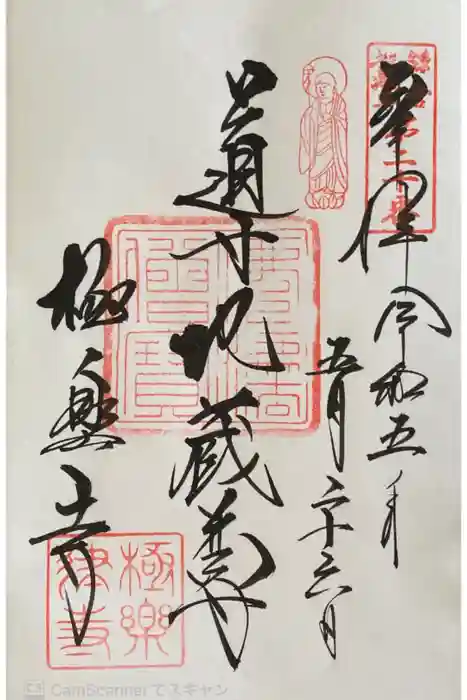 奉拝 令和五年
五月二十六日
導地蔵尊
極楽寺
極樂律寺
CamScannerでスキャン